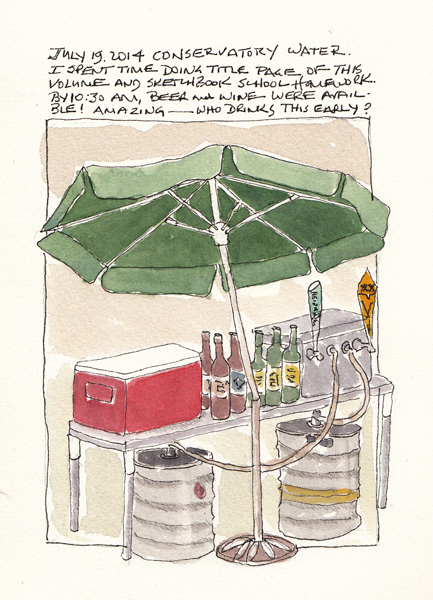 JULY 19, 2014 CONSERVATORY WATER.
I SPENT TIME DOING TITLE PAGE OF THIS
VOLUME AND SKETCHBOOK SCHOOL HOMEWORK.
BY 10:30 AM, BEER AND WINE WERE AVAIL-
BLE! AMAZING — WHO DRINKS THIS EARLY?